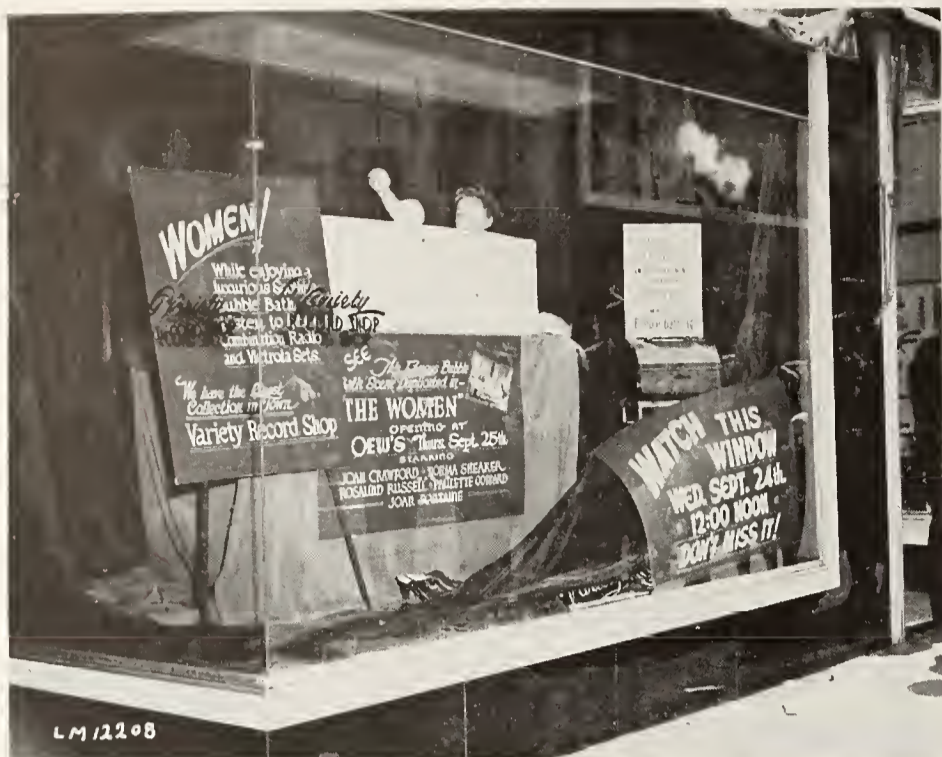 WOMEN!
While enjoying a
luxurious
Bubble Bath
Listen to
Combination Radio
and Victrola Sets.
We have the Finest
Collection in Town
Variety Record Shop
Variety
RECORD SHOP
SEE
This Famous Bubble
Bath Scene Duplicated in-
"THE WOMEN"
OPENING AT
LOEW'S Thurs. Sept. 25th.
STARRING
JOAN CRAWFORD - NORMA SHEARER
ROSALIND RUSSELL - PAULETTE GODDARD
JOAN FONTAINE
WATCH THIS
WINDOW
WED. SEPT. 24th.
12:00 NOON
DON'T MISS IT!
LM12208